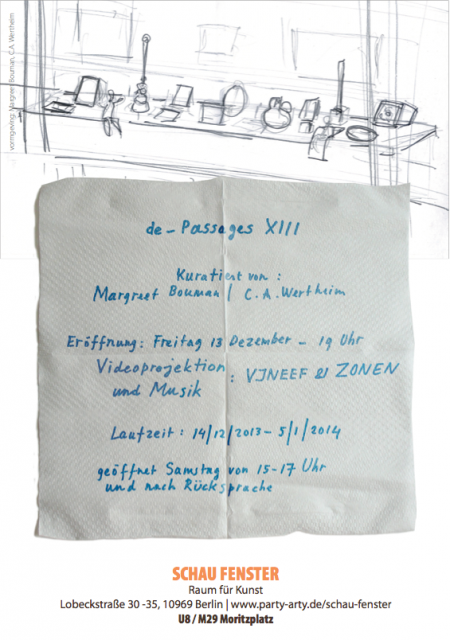 vormgeving: Margreet Bouman, C.A. Wertheim
de - Passages XIII
Kuratiert von :
Margreet Bouman / C.A. Wertheim
Eröffnung: Freitag 13 Dezember - 19 Uhr
Videoprojektion
und Musik : VJNEEF & ZONEN
Laufzeit : 14/12/2013 - 5/1/2014
geöffnet Samstag von 15-17 Uhr
und nach Rücksprache
SCHAU FENSTER
Raum für Kunst
Lobeckstraße 30 -35, 10969 Berlin | www.party-arty.de/schau-fenster
U8 / M29 Moritzplatz